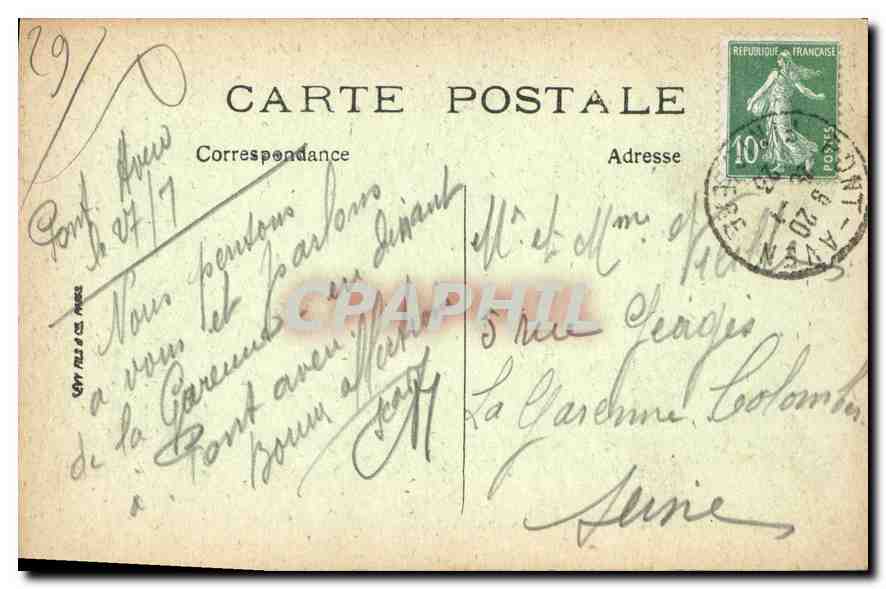 29
CARTE POSTALE
Correspondance
Adresse
REPUBLIQUE FRANÇAISE
10c
POSTES
PONT-AVEN
9 20
27
7
23
Pont Aven
le 27/7
Nous pensons
a vous et parlons
de la Garenne en dinant
à Pont aven.
Bonne
Mr et Mme
5 rue
La Garenne Colombes
Seine
LEVY FILS & CIE PARIS
CPAPHIL